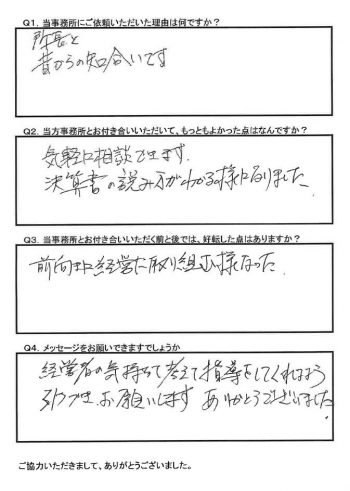 Q1. 当事務所にご依頼いただいた理由は何ですか？
所長と
昔からの知り合いです
Q2. 当方事務所とお付き合いいただいて、もっともよかった点はなんですか？
気軽に相談できます.
決算書の読み方がわかる様になりました.
Q3. 当事務所とお付き合いいただく前と後では、好転した点はありますか？
前向きに経営に取り組む様なった.
Q4. メッセージをお願いできますでしょうか
経営者の気持ちで考えて指導をしてくれるよう
引つづきお願いします ありがとうございました
ご協力いただきまして、ありがとうございました。